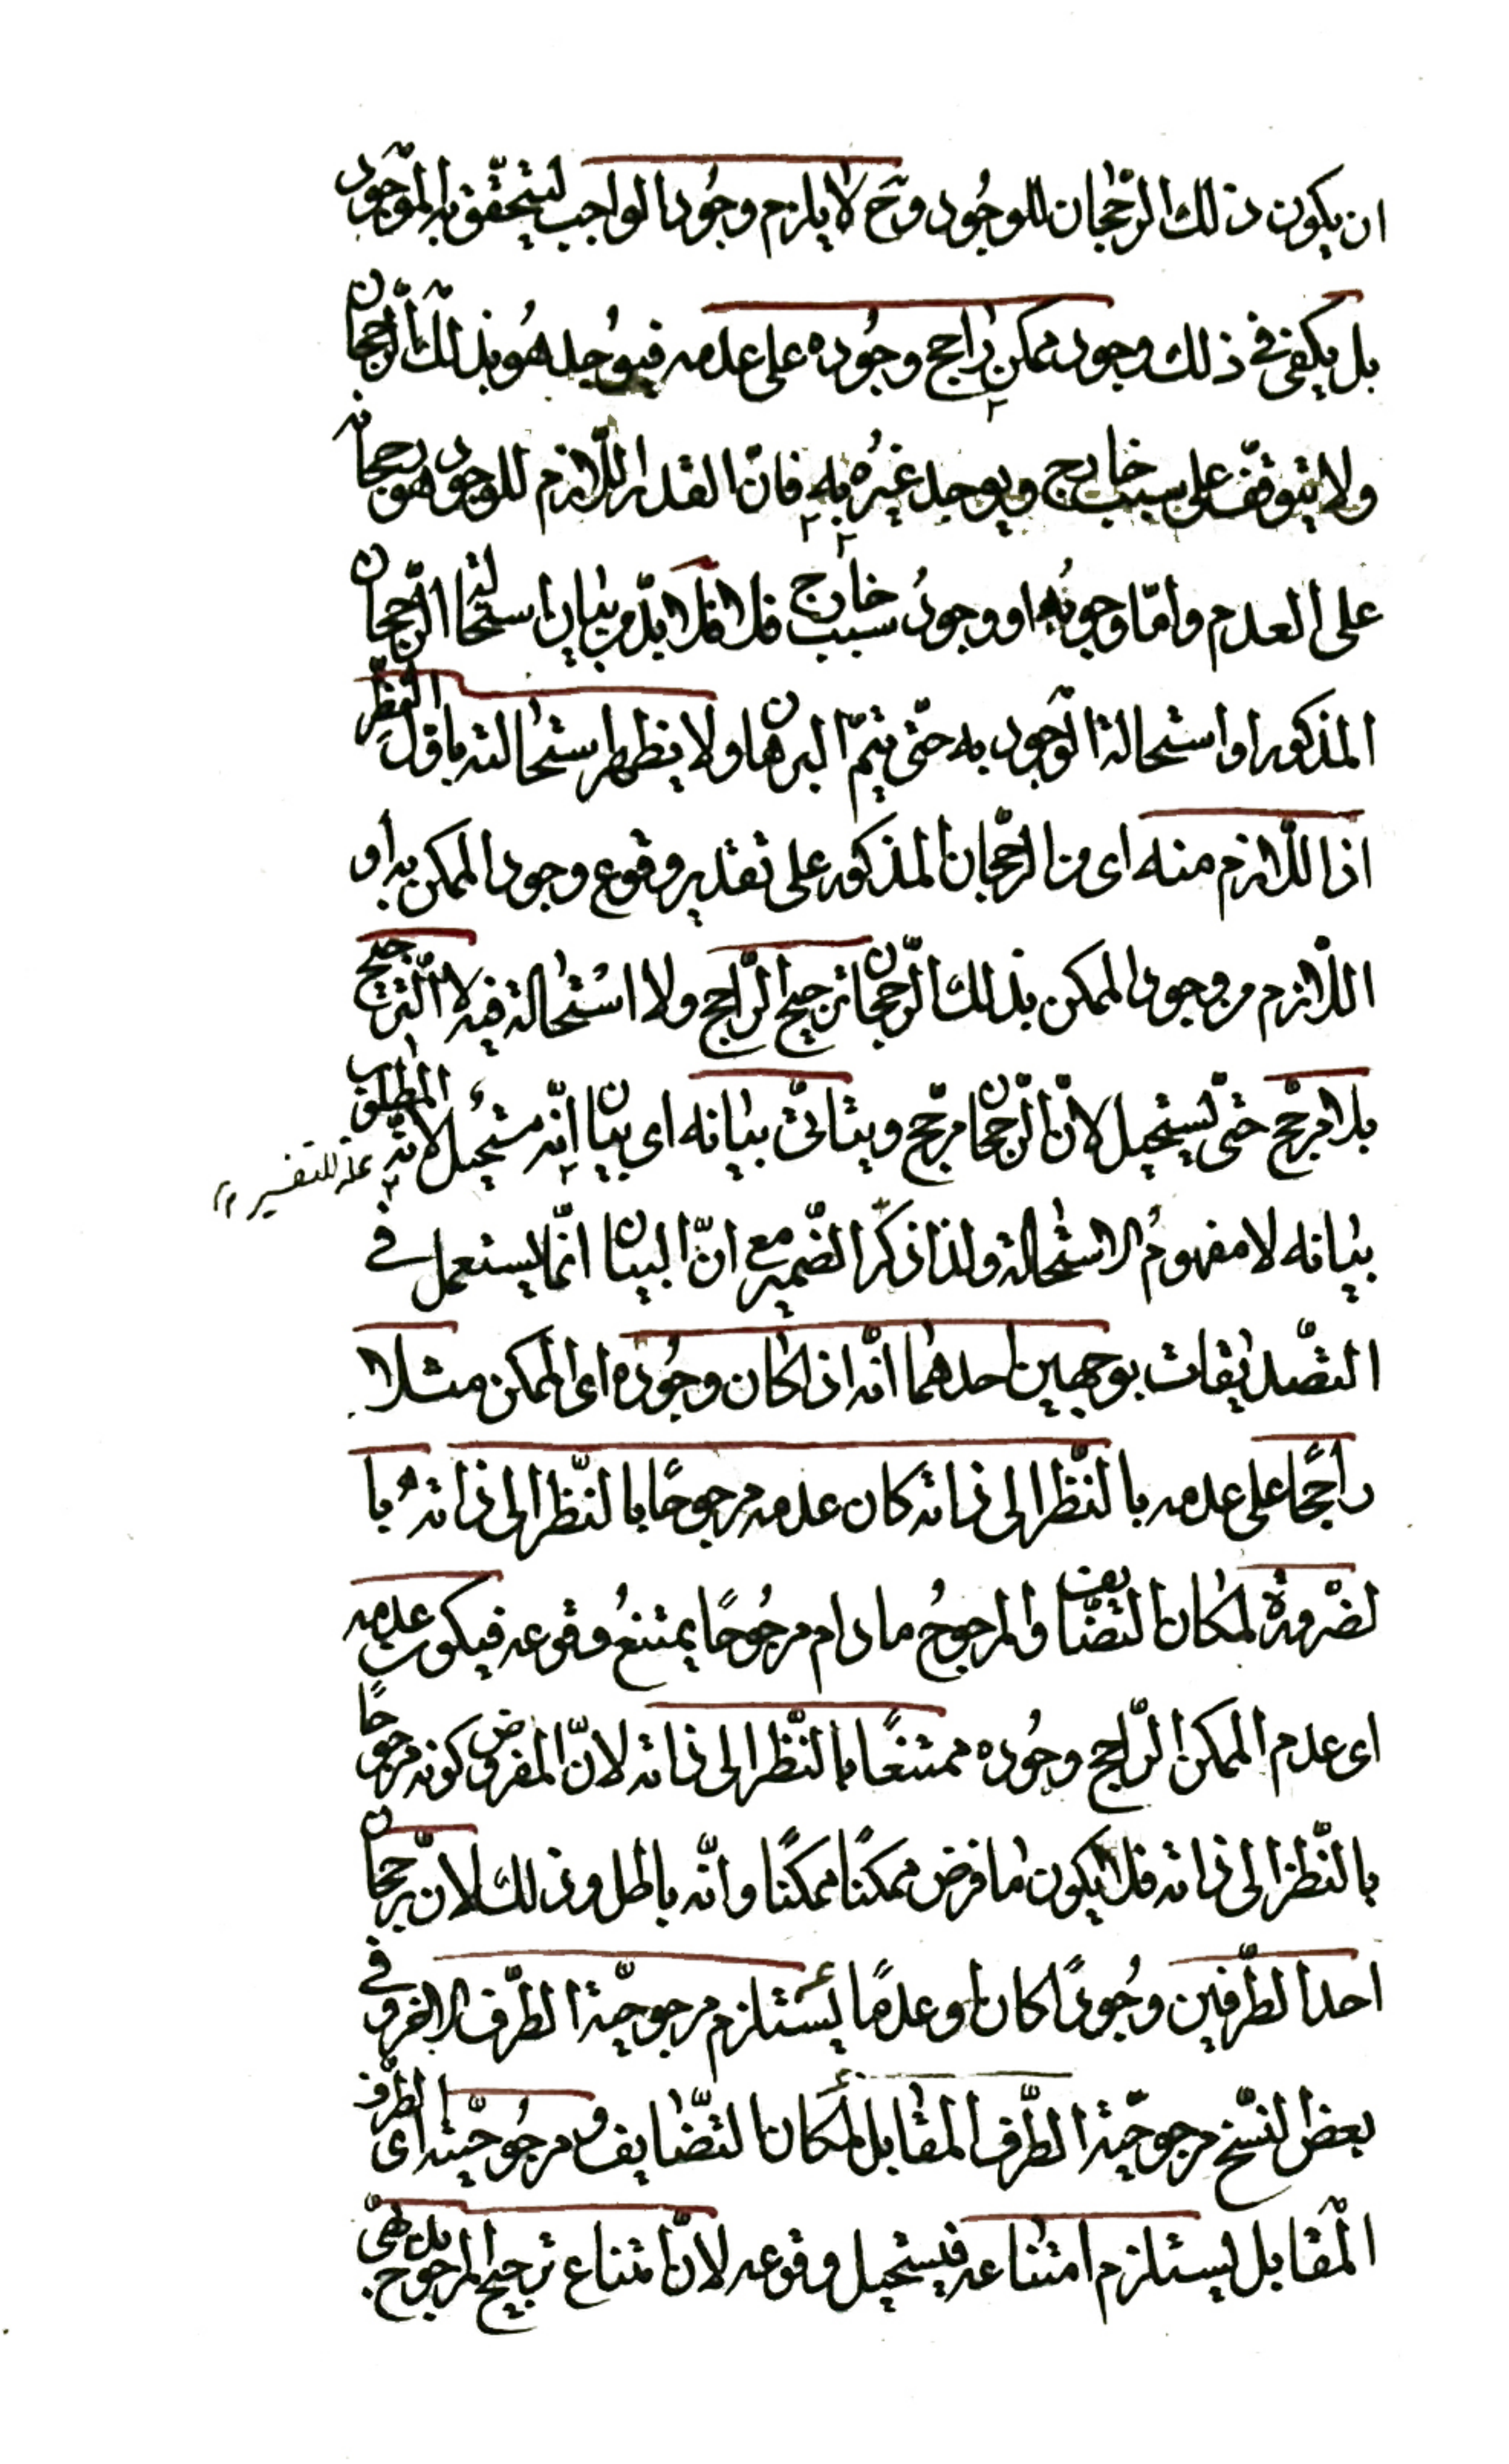 ان يكون ذلك الرّجحان للوجُود وح لا يلزم وجُود الواجب ليتحقّق به الموجود
بل يكفى فى ذلك وجود ممكن راجح وجُوده على عدمه فيوُجد هُو بذلك الرّجحان
ولا يتوقّف على سبب خارج ويوجد غيرُه به فانّ القدر اللّازم للوجود هو رجحانه
على العدم وامّا وجوبُه او وجودُ سبب خارج فلا فلا بدّ من بيان استحالة الرّجحان
المذكور او استحالة الوّجود به حتّى يتمّ البرهان ولا يظهر استحالته باوّل النّظر
اذ اللّازم منه اى من الرّجحان المذكور على تقدير وقوع وجود الممكن به او
اللّازم من وجود الممكن بذلك الرّجحان ترجيح الرّاجح ولا استحالة فيه لا التّرجيح
بلا مرجّح حتّى يستحيل لانّ الرّجحان مرجّح ويتاتّى بيانه اى بيان انّه مستحيل لانّه المطلوب
علّة للتفسير ١٢
بيانه لا مفهومُ الاستحالة ولذا ذكّر الضّمير مع انّ البيان انّما يستعمل فى
التصّديقات بوجهين احدهما انّه اذا كان وجُوده اى الممكن مثلا
راجحًا على عدمه بالنّظر الى ذاته كان عدمه مرجوحًا بالنّظر الى ذاته با
لضّرورة لمكان التضّايف والمرجوحُ ما دام مرجُوحًا يمتنعُ وقوعه فيكون عدمه
اى عدم الممكن الرّاجح وجُوده ممتنعًا بالنّظر الى ذاته لانّ المفروض كونه مرجوحًا
بالنّظر الى ذاته فلا يكون ما فرض ممكنًا ممكنًا وانّه باطل وذلك لانّ رجحان
احد الطّرفين وجُودًا كان او عدمًا يستلزم مرجوحيّة الطّرف الاخر وفى
بعض النسّخ مرجوحيّة الطّرف المقابل لمكان التّضايف ومرجُوحيّته اى الطّرف
المقابل يستلزم امتناعه فيستحيل وقوعه لانّ امتناع ترجيح المرجوح بدهىّ